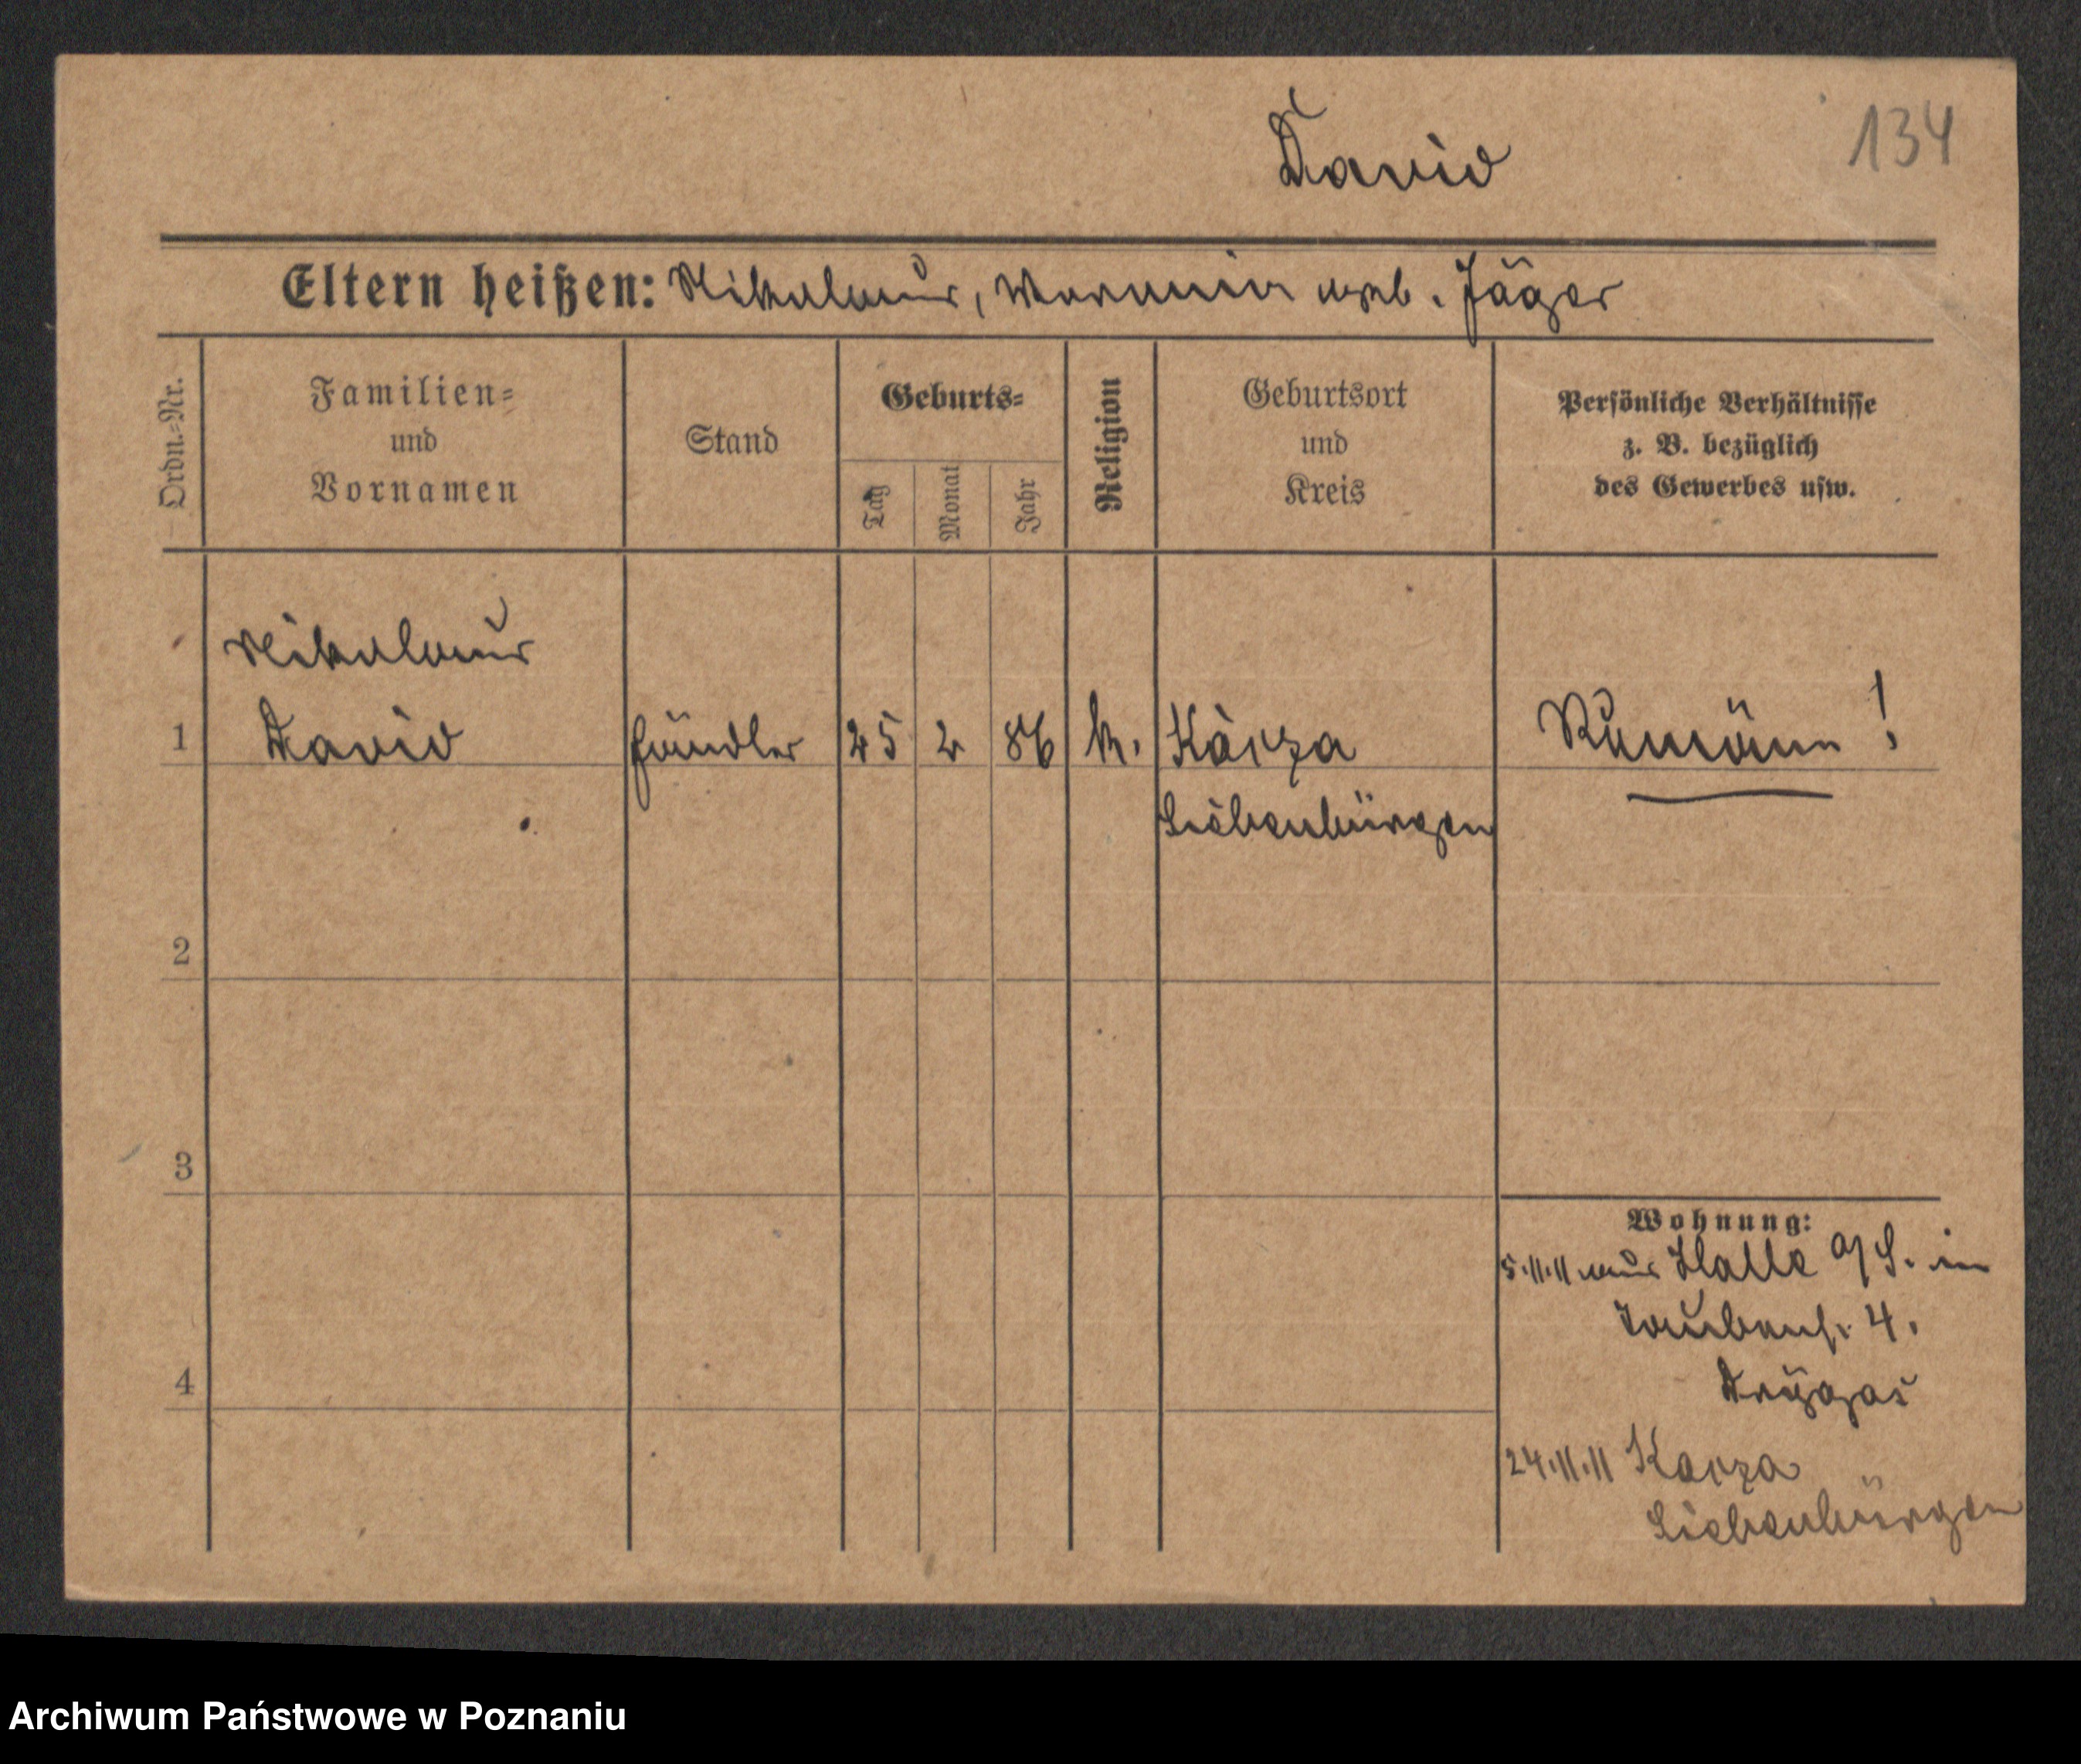 David
134
Eltern heißen: Nikolaus, Marania geb. Jäger
Ordn.-Nr.
Familien-
und
Vornamen
Stand
Geburts-
Tag
Monat
Jahr
Religion
Geburtsort
und
Kreis
Persönliche Verhältnisse
z. B. bezüglich
des Gewerbes usw.
Nikolaus
1 David Händler 25 2 86 k. Kárza Rumäne !
Siebenbürgen
2
3
4
Wohnung:
5.11.11 aus Halle a/S. in
Taubenst. 4.
24.11.11 Karza
Siebenbürgen
Archiwum Państwowe w Poznaniu